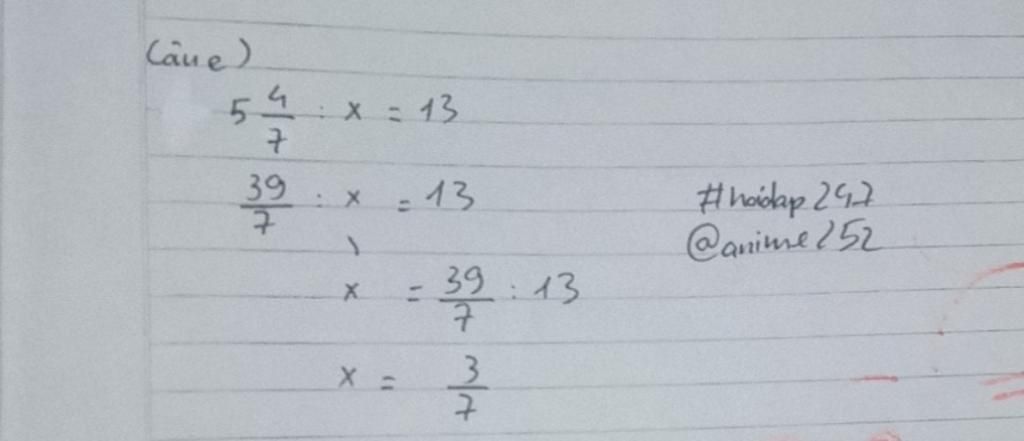 (câu e)
5 4/7 : x = 13
39/7 : x = 13
x = 39/7 : 13
x = 3/7
#hoidap247
@anime252